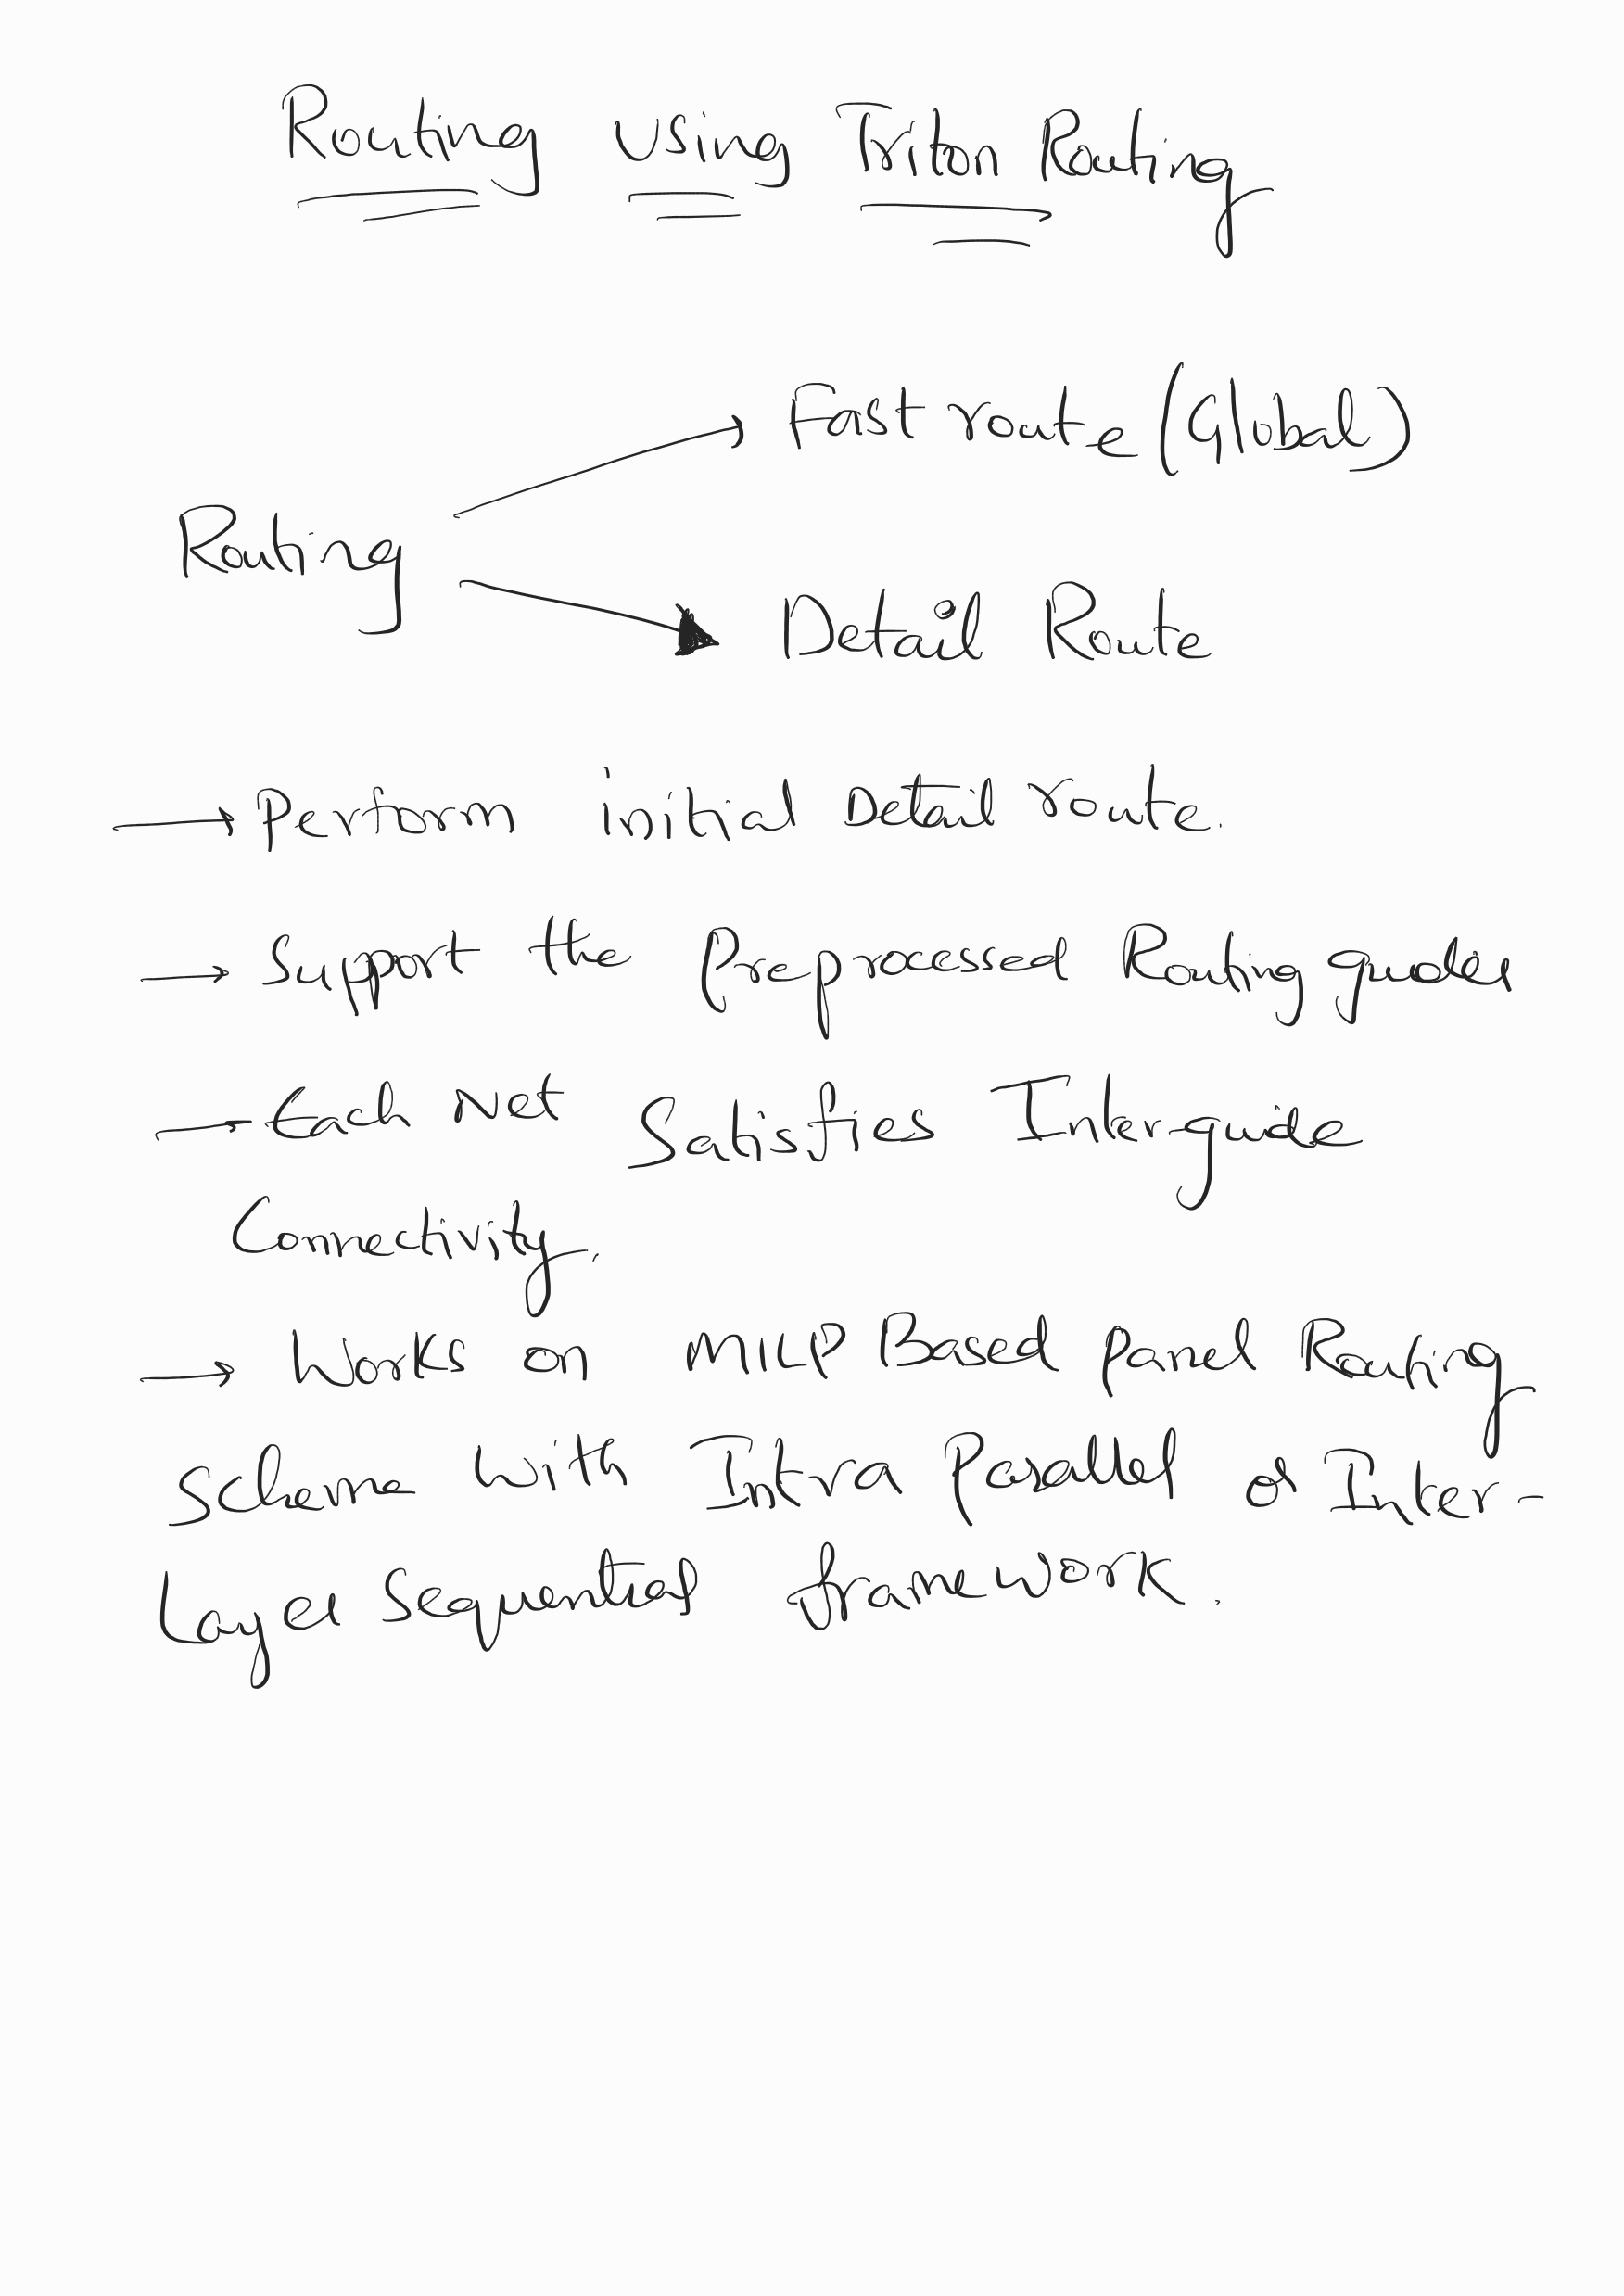 Routing using Triton Routing
Fast route (Global)
Routing
Detail Route
→ Perform initial Detail route.
→ Support the Preprocessed Routing guides
— Each Net Satisfies Inter-guide
Connectivity.
→ Works on MILP Based Panel Routing
Scheme with Intra Parallel or Inter-
Layer Sequential framework.